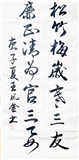 松竹梅歲寒三友
廉正清為官三要
庚子夏王金士